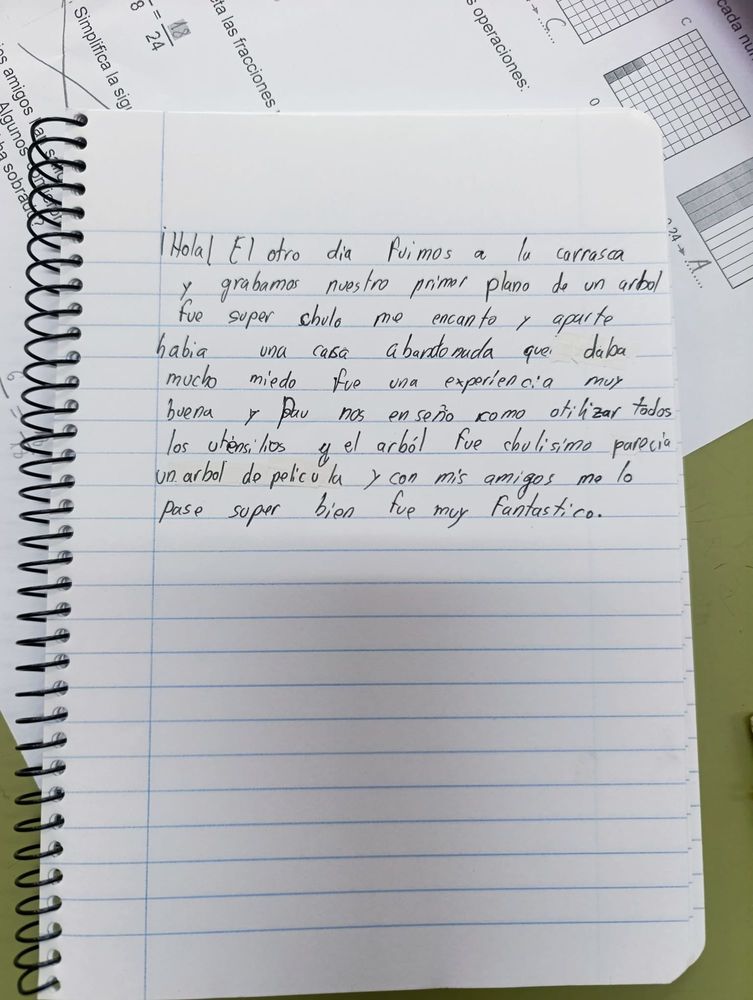 ¡Hola! El otro dia fuimos a la carrasca
y grabamos nuestro primer plano de un arbol
fue super chulo me encanto y aparte
habia una casa abandonada que daba
mucho miedo fue una experiencia muy
buena y Pau nos enseño como otilizar todos
los uténsilios y el arból fue chulisimo parecia
un arbol de pelicula y con mis amigos me lo
pase super bien fue muy fantastico.
Simplifica la sig
8 = 24
18
ta las fracciones
s operaciones:
C
C
0
24 → A
cada nu
os amigos
Algunos
ha sobrado